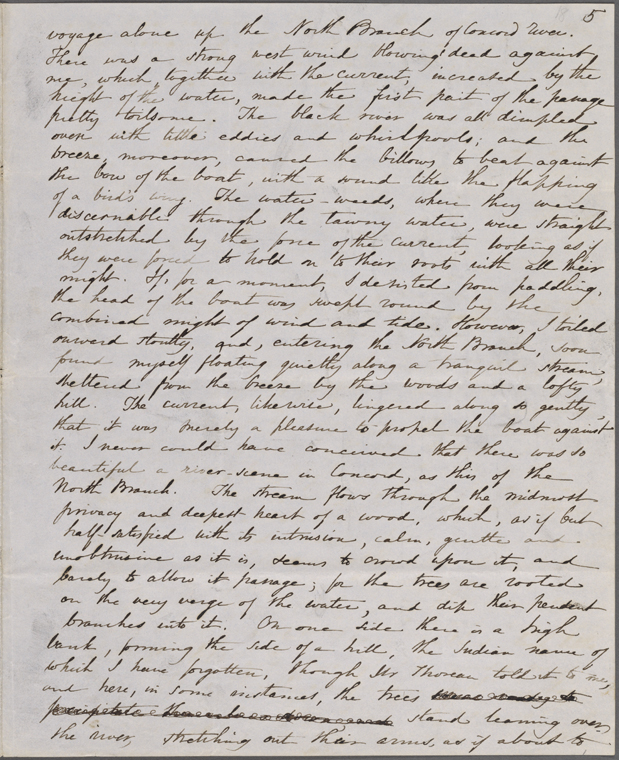 5
voyage alone up the North Branch of Concord River.
There was a strong west wind blowing dead against
me, which, together with the current, increased by the
height of the water, made the first part of the passage
pretty toilsome. The black river was all dimpled
over with little eddies and whirlpools; and the
breeze, moreover, caused the billows to beat against
the bow of the boat, with a sound like the flapping
of a bird's wing. The water-weeds, where they were
discernable through the tawny water, were straight
outstretched by the force of the current, looking as if
they were forced to hold on to their roots with all their
might. If, for a moment, I desisted from paddling,
the head of the boat was swept round by the
combined might of wind and tide. However, I toiled
onward stoutly, and, entering the North Branch, soon
found myself floating quietly along a tranquil stream,
sheltered from the breeze by the woods and a lofty
hill. The current, likewise, lingered along so gently,
that it was merely a pleasure to propel the boat against
it. I never could have conceived that there was so
beautiful a river-scene in Concord, as this of the
North Branch. The stream flows through the midmost
privacy and deepest heart of a wood, which, as if but
half-satisfied with its intrusion, calm, gentle and
unobtrusive as it is, seems to crowd upon it, and
barely to allow it passage; for the trees are rooted
on the very verge of the water, and dip their pendent
branches into it. On one side there is a high
bank, forming the side of a hill, the Indian name of
which I have forgotten, though Mr Thoreau told it to me;
and here, in some instances, the trees
stand leaning over
the river, stretching out their arms, as if about to